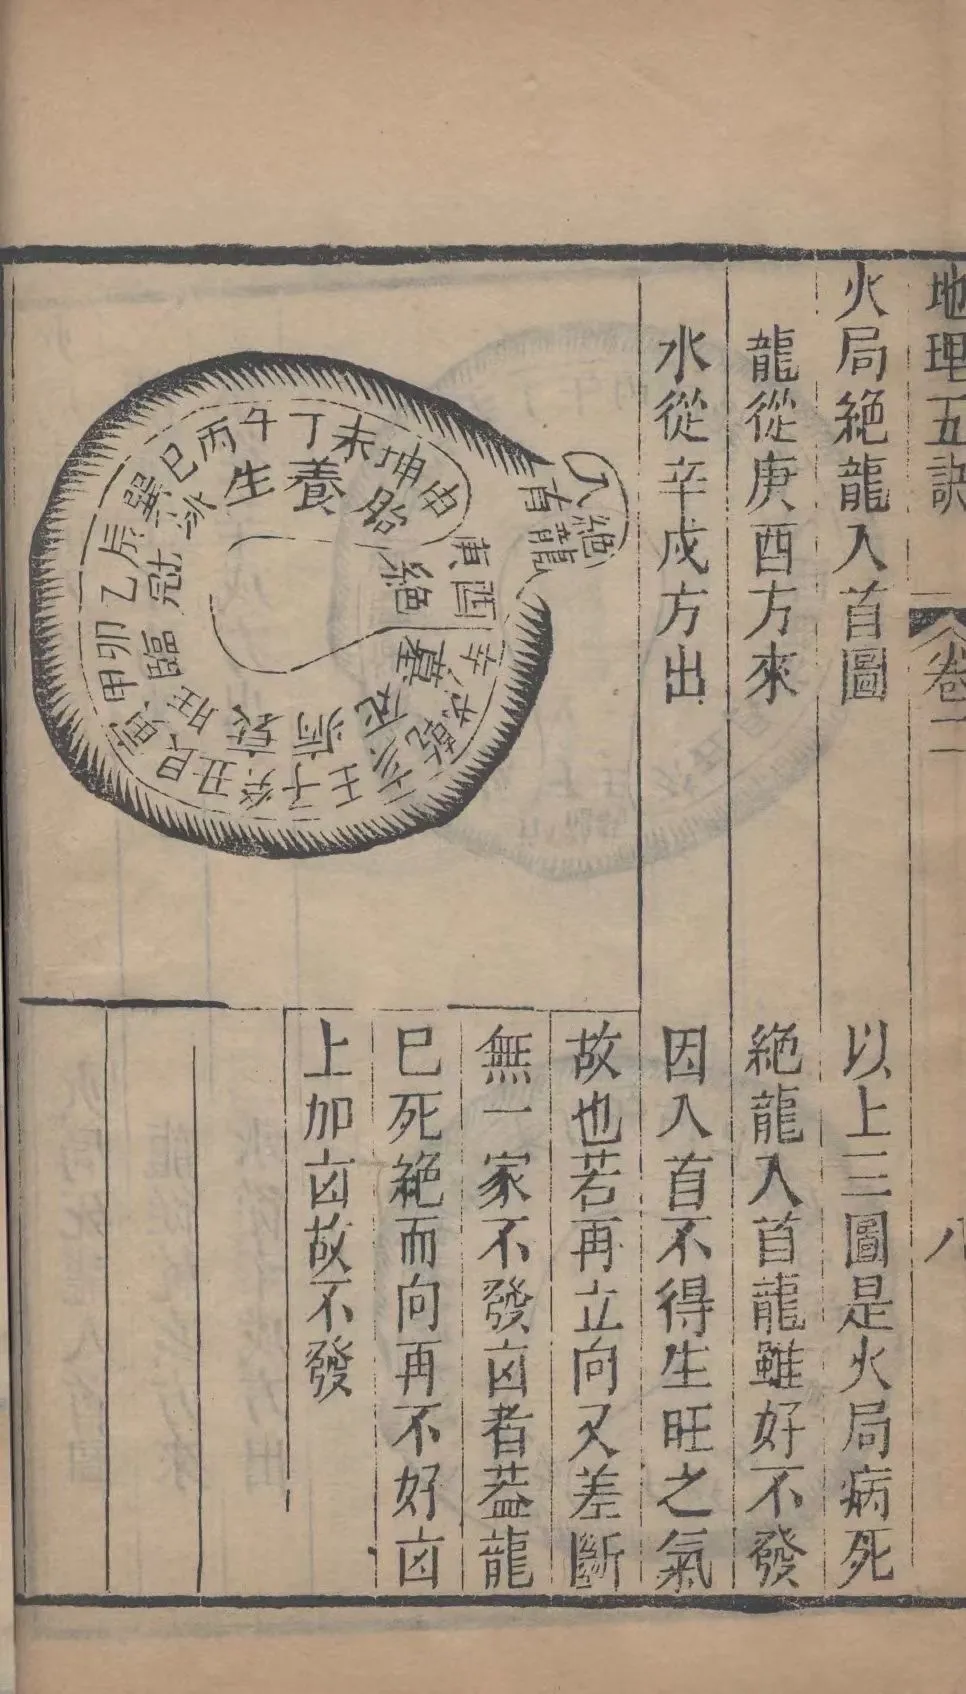 地理五訣
卷二
八
火局絕龍入首圖
龍從庚酉方來
水從辛戌方出
入首龍
絕
午丁未坤申庚酉辛戌乾亥壬子癸丑艮寅甲卯乙辰巽巳丙
生養
絕墓死病衰旺臨冠
以上三圖是火局病死
絕龍入首龍雖好不發
因入首不得生旺之氣
故也若再立向又差斷
無一家不發凶者葢龍
巳死絕而向再不好凶
上加凶故不發